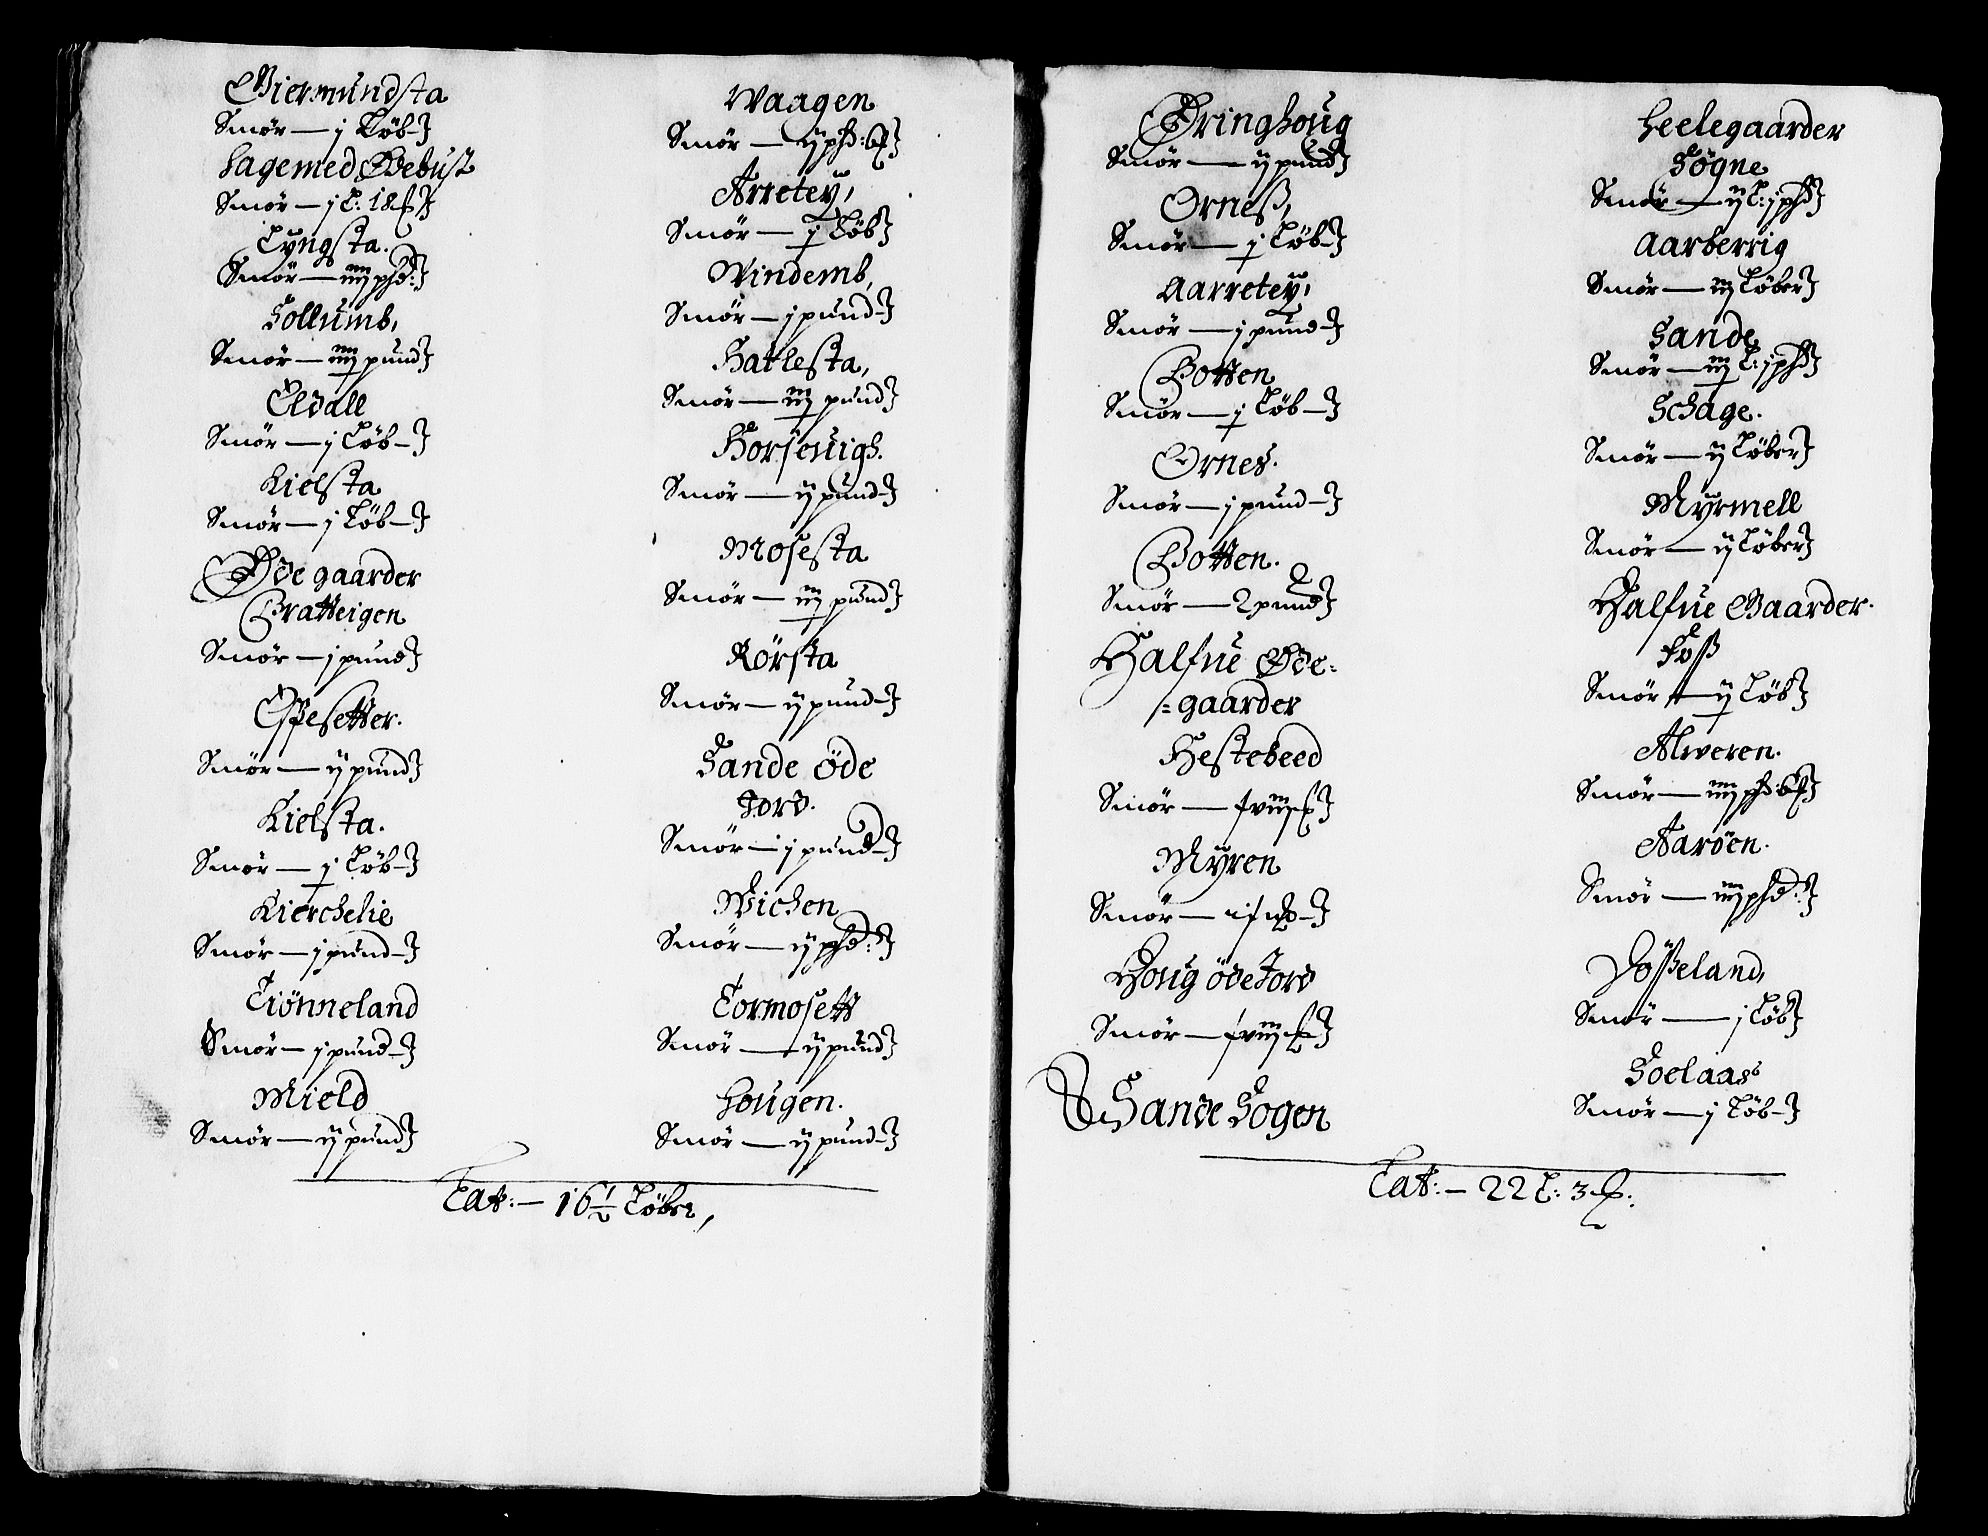 Giermundsta
Smör — j Löb
Hagemed Bebust
Smör — j L: 18 ℔
Lyngsta.
Smör — iiij phd:
Sollumb,
Smör — iiij pund
Eldall
Smör — j Löb
Kielsta
Smör — j Löb
Øde gaarder
Bratteigen
Smör — j pund
Espesetter.
Smör — ij pund
Kielsta.
Smör — j Löb
Kierchelie
Smör — j pund
Tiönneland
Smör — j pund
Mield
Smör — ij pund
Waagen
Smör — ij phd: 6 ℔
Arretey,
Smör — j Löb
Windemb,
Smör — j pund
Hatlesta,
Smör — iij pund
Horseuigh.
Smör — ij pund
Mosesta
Smör — iij pund
Rörsta
Smör — ij pund
Sande öde
Jord.
Smör — j pund
Wichen
Smör — ij phd:
Tormosett
Smör — ij pund
Hougen.
Smör — ij pund
Lat: — 16½ Löber,
Øringhoug
Smör — ij pund
Orneß,
Smör — j Löb
Aarretey,
Smör — j pund
Botten
Smör — j Löb
Ornes.
Smör — j pund
Botten.
Smör — 2 pund
Halfue Øde=
=gaarder
Hestebeed
Smör — xviij ℔
Myren
Smör —
Houg öde Jord
Smör — xviij ℔
Sande Sogen
Heelegaarder
Søgne
Smör — ij L: j phd
Aarberrig
Smör — iij Löber
Sande
Smör — iij L: j phd
Schage.
Smör — ij Löber
Myrmell
Smör — ij Löber
Halfue Gaarder.
Foß
Smör — ij Löb
Alweren.
Smör — iiij phd: 6 ℔
Aaröen.
Smör — iiij phd:
Joßeland,
Smör — j Löb
Soelaas
Smör — j Löb
Lat: — 22 L: 3 ℔: